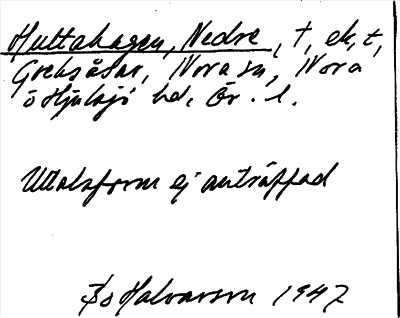 Hultahagen, Nedre, t, ek, t,
Greksåsar, Nora sn, Nora
o Hjulsjö hd, Ör. l.
Uttalsform ej anträffad
Bo Halvarson 1947